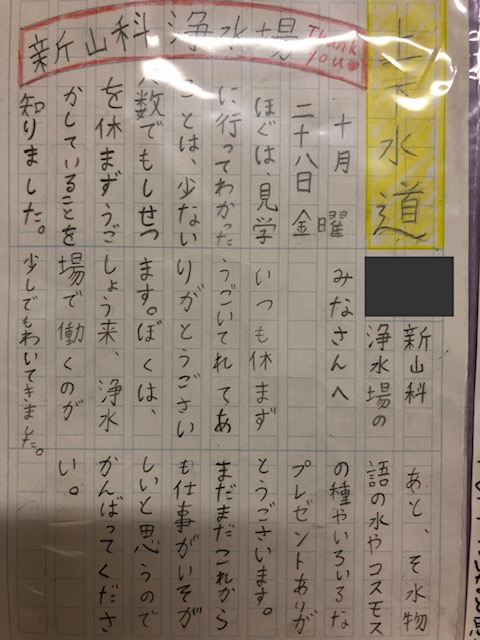 新山科浄水場 Thank You
上下水道
十月
二十八日金曜
ほぐは、見学
に行ってわかった
ことは、少ない
人数でもしせつ
を休まずうご
かしていることを
知りました。
新山科
浄水場の
みなさんへ
いつも休まず
うごいてれてあ
りがとうござい
ます。ぼくは、
しょう来、浄水
場で働くのが
少しでもわいてきました。
あと、そ水物
語の水やコスモス
の種やいろいろな
プレゼントありが
とうございます。
まだまだこれから
も仕事がいそが
しいと思うので
がんばってくださ
い。